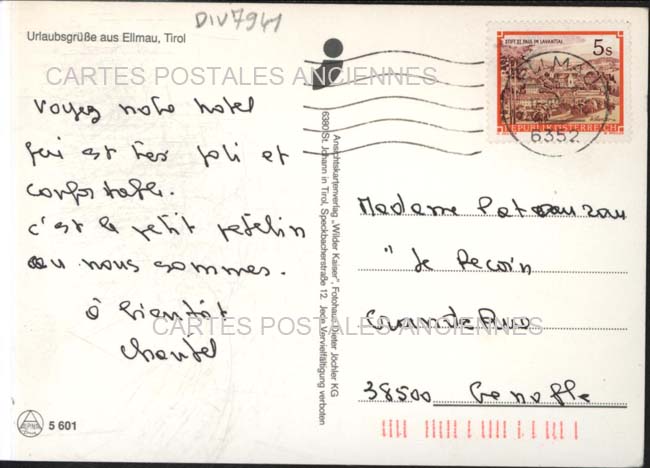 DIV7941
Urlaubsgrüße aus Ellmau, Tirol
CARTES POSTALES ANCIENNES
Voyez notre hotel
qui est très joli et
confortable.
C'est le petit
où nous sommes.
à bientôt
Chantal
CARTES POSTALES ANCIENNES
5 601
Ansichtskartenverlag „Wilder Kaiser", Fotohaus Dieter Jöchler KG
6380 St. Johann in Tirol, Speckbacherstraße 12. Jede Vervielfältigung verboten
STIFT ST. PAUL IM LAVANTTAL
5s
REPUBLIK ÖSTERREICH
6352
Madame
" Le Recoin
38500